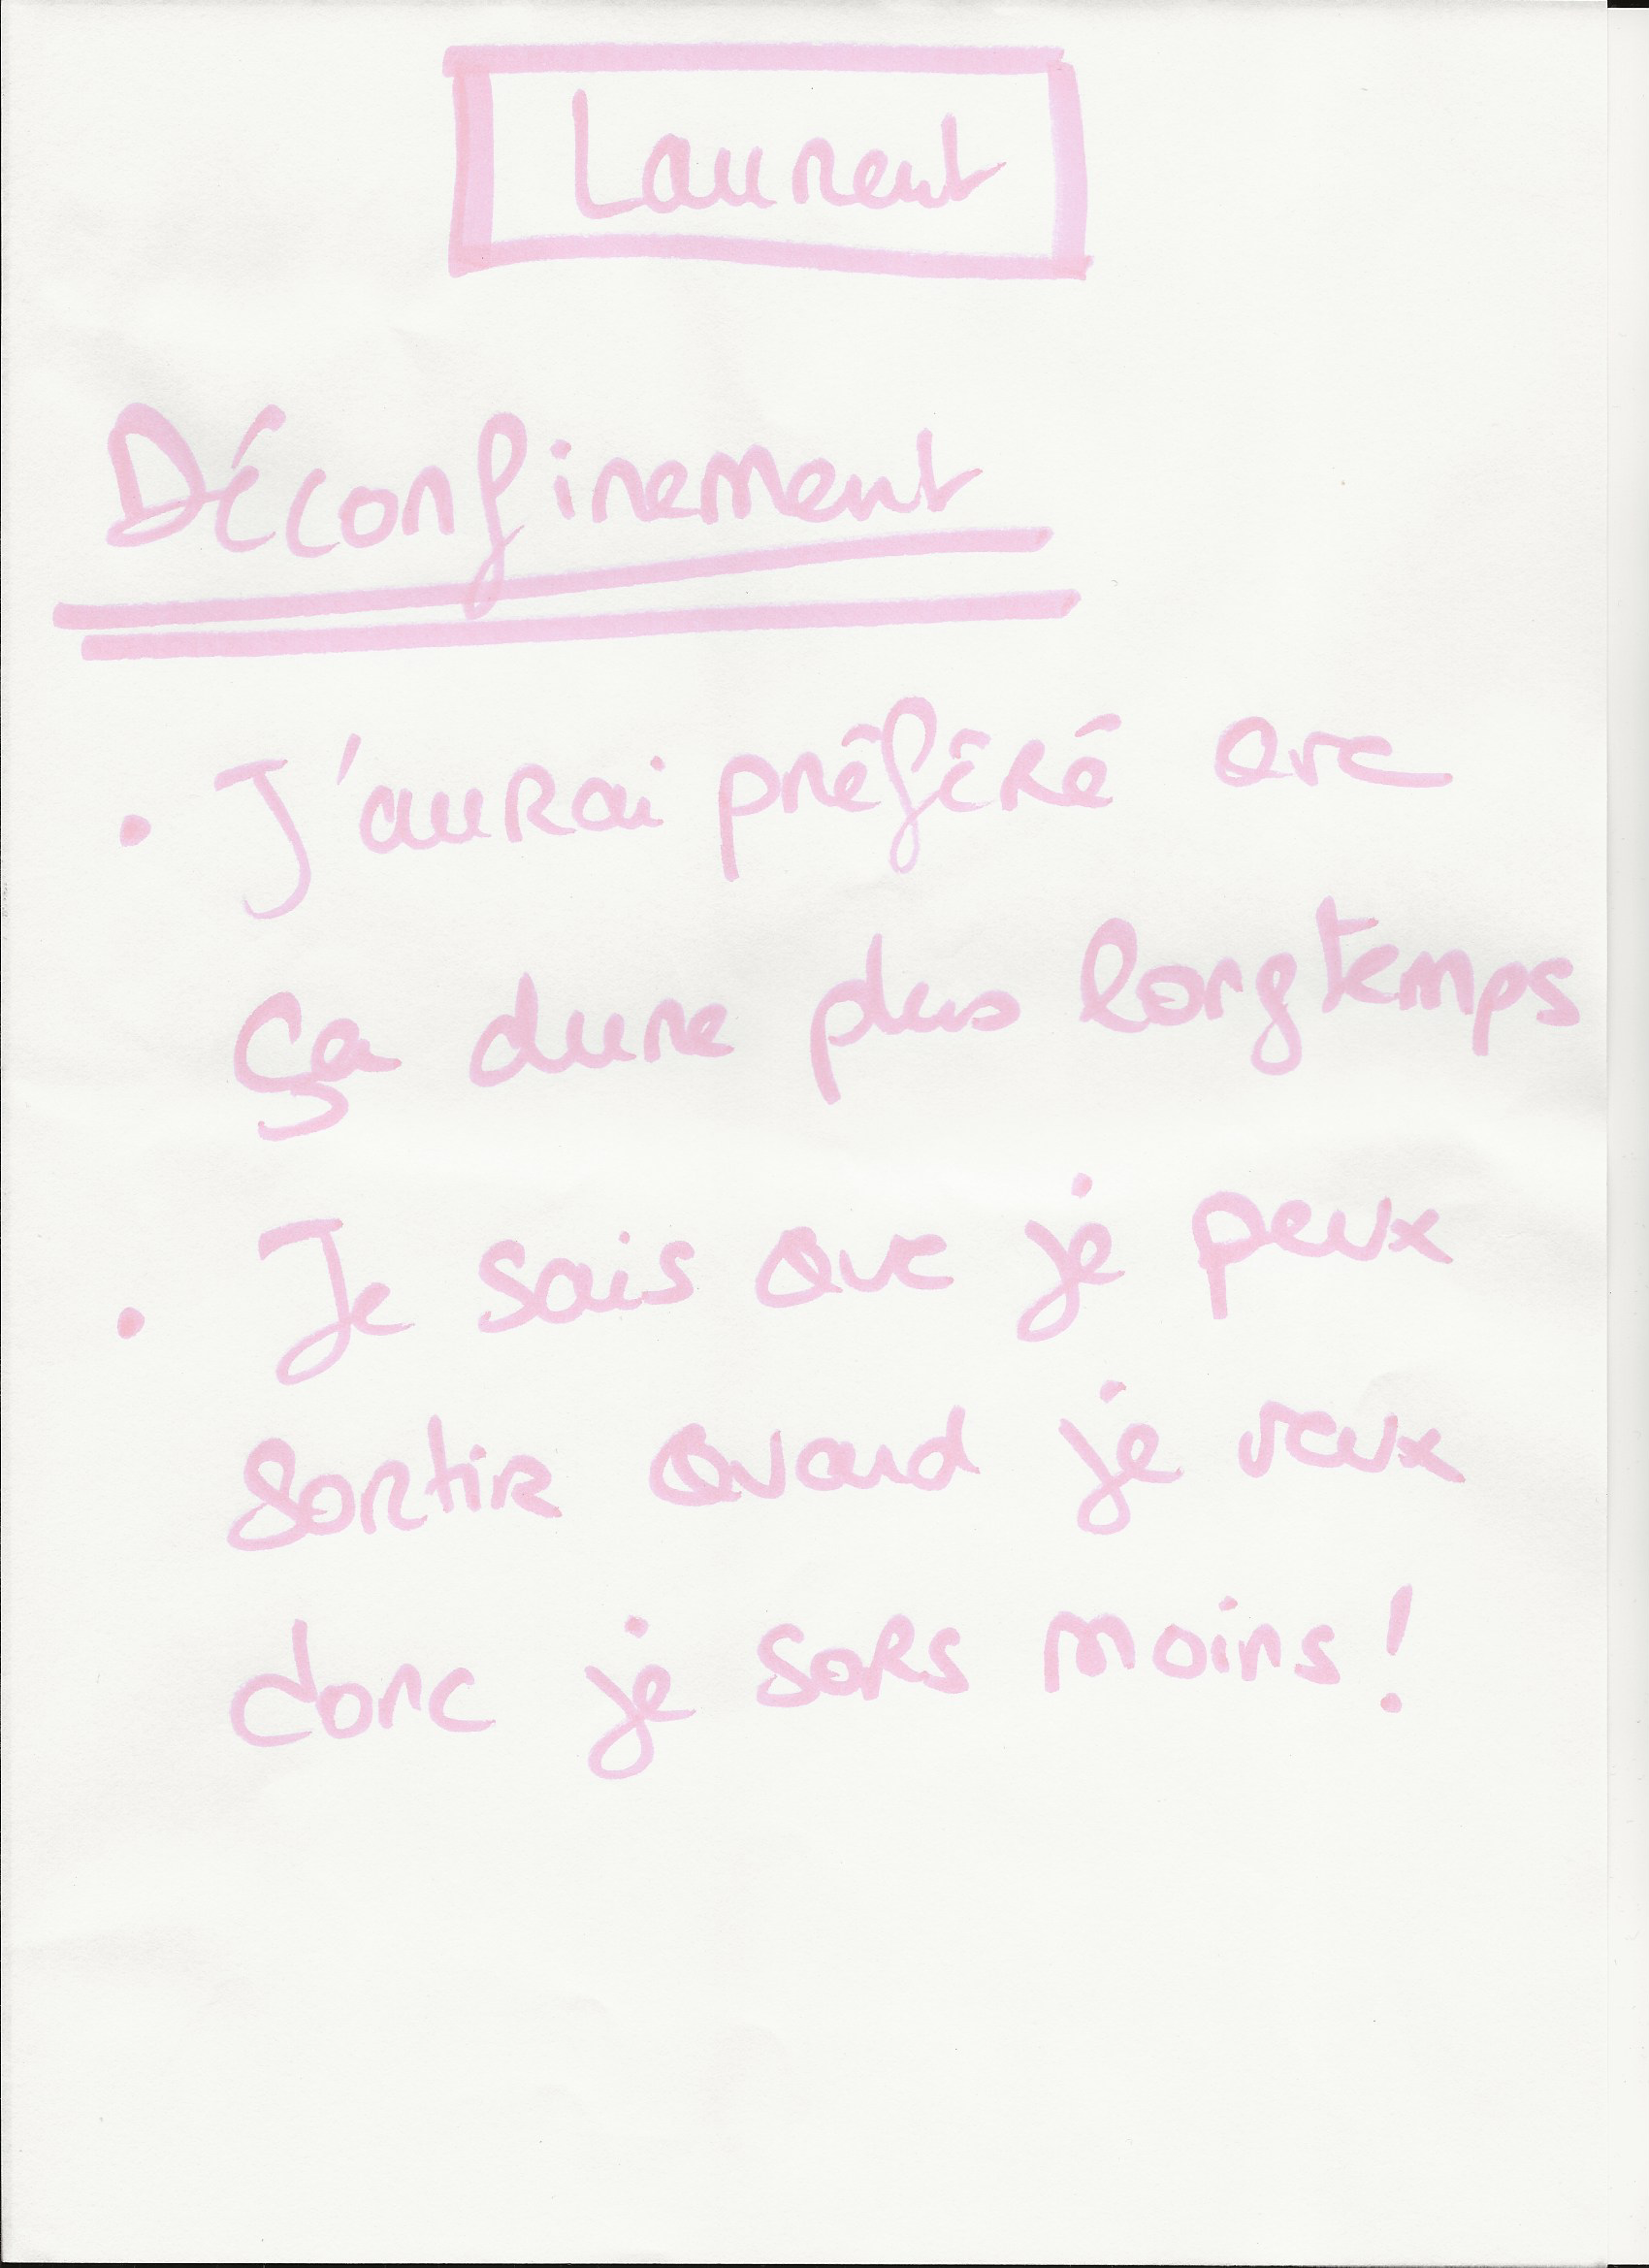 Laurent
Déconfinement
• J'aurai préféré que
ça dure plus longtemps
• Je sais que je peux
sortir quand je veux
donc je sors moins !